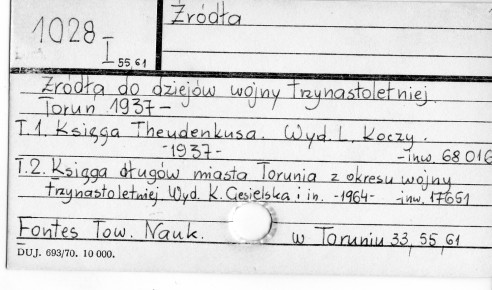 1028
I 55,61
Źródła
Źródła do dziejów wojny trzynastoletniej.
Toruń 1937 –
T.1. Księga Theudenkusa. Wyd. L. Koczy.
-1937- -inw. 68016
T.2. Księga długów miasta Torunia z okresu wojny
trzynastoletniej. Wyd. K. Ciesielska i in. -1964- inw. 17651
Fontes Tow. Nauk. w Toruniu 33, 55, 61
DUJ. 693/70. 10 000.